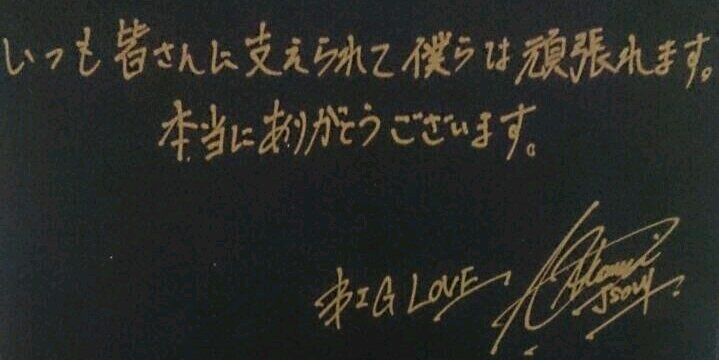 いつも皆さんに支えられて僕らは頑張れます。
本当にありがとうございます。
BIG LOVE
JSOUL